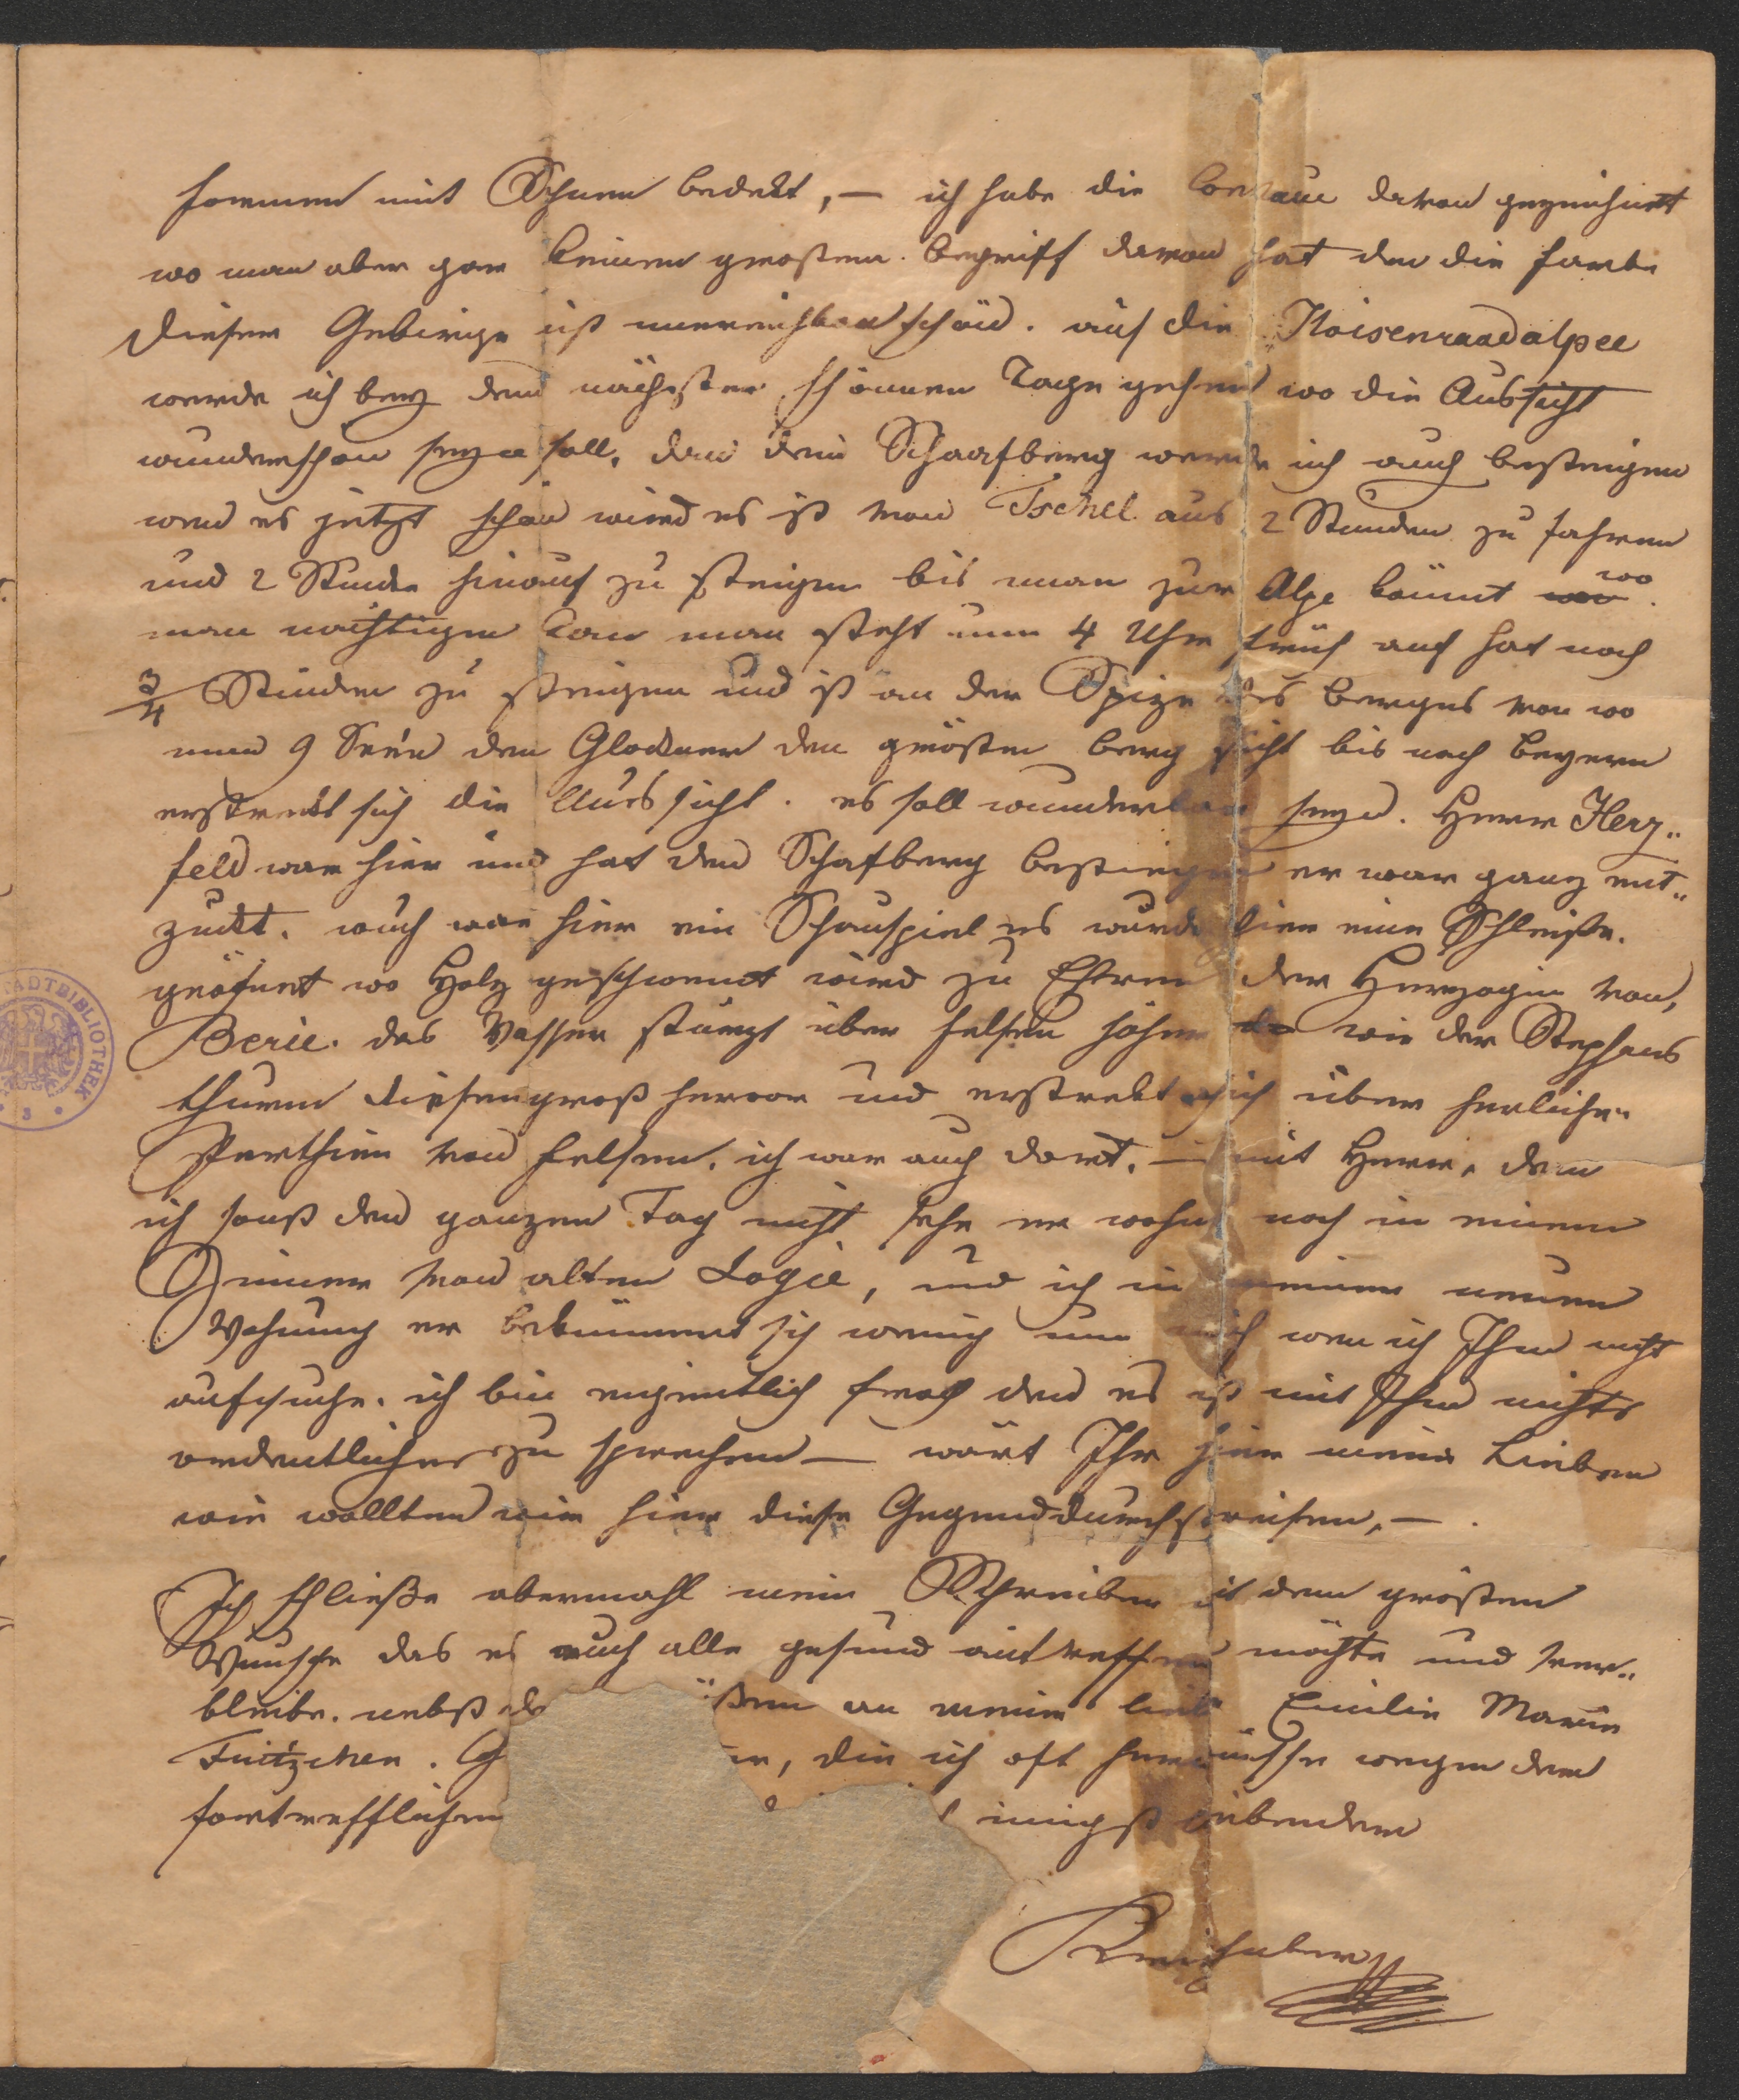 formen mit Schnee bedekt, — ich habe die davon gezeichnet
wo man aber gar keinen grosten Begriff davon hat den die Farbe
dieser Gebirge ist unereichbar schön. auf die Hoisenraadalpee
werde ich bey dem nächsten schönen Tage gehen wo die Aussicht
wunderschön seyn soll, den Schaafberg werde ich auch besteigen
wen es jetzt schön wird es ist von Ischel aus 2 Stunden zu fahren
und 2 Stunde hinauf zu steigen bis man zur Alpe kömmt wo
man nächtigen kan man steht um 4 Uhr früh auf hat noch
3/4 Stunden zu steigen und ist an der Spize des Berges von wo
man 9 Seen den Glockner den grösten Berg sieht bis nach Beyern
erstrekt sich die Aussicht. es soll wunderbar seyn. Herr Herz„
feld war hier und hat den Schafberg bestiegen er war ganz ent„
zückt. auch war hier ein Schauspiel es wurde hier eine Schleiße.
geöfnet wo Holz geschwemt wird zu Ehren der Herzogin von,
Berie. das Wasser stürzt über Felsen höher wie der Stephans
thurm riesengroß hervor und erstrekt sich über herliche
Parthien von Felsen. ich war auch dort. — mit Herr. den
ich sonst den ganzen Tag nicht sehe er wohnt noch in einem
Zimmer von alten Logie, und ich in meiner neuen
Wohnung er bekümmert sich wenig um mich wen ich Ihm nicht
aufsuche. ich bin eigentlich froh den es ist mit Ihm nichts
ordentliches zu sprechen — wärt Ihr hier meine Lieben
wie wollten wir hier diese Gegend durchstreifen, —
Ich schließe abermahl mein Schreiben mit dem grösten
Wunsche das es euch alle gesund antreffen möchte und ver„
bleibe. nebst an meine liebe Emilie Marie
Fritzchen. die ich oft wegen den
fortrefflichen innigst liebender
Kriehuber
STADTBIBLIOTHEK